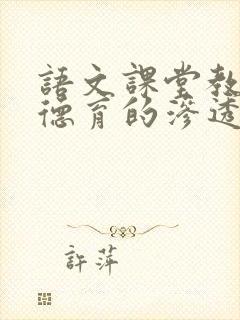 語文課堂教
德育的滲透
許萍